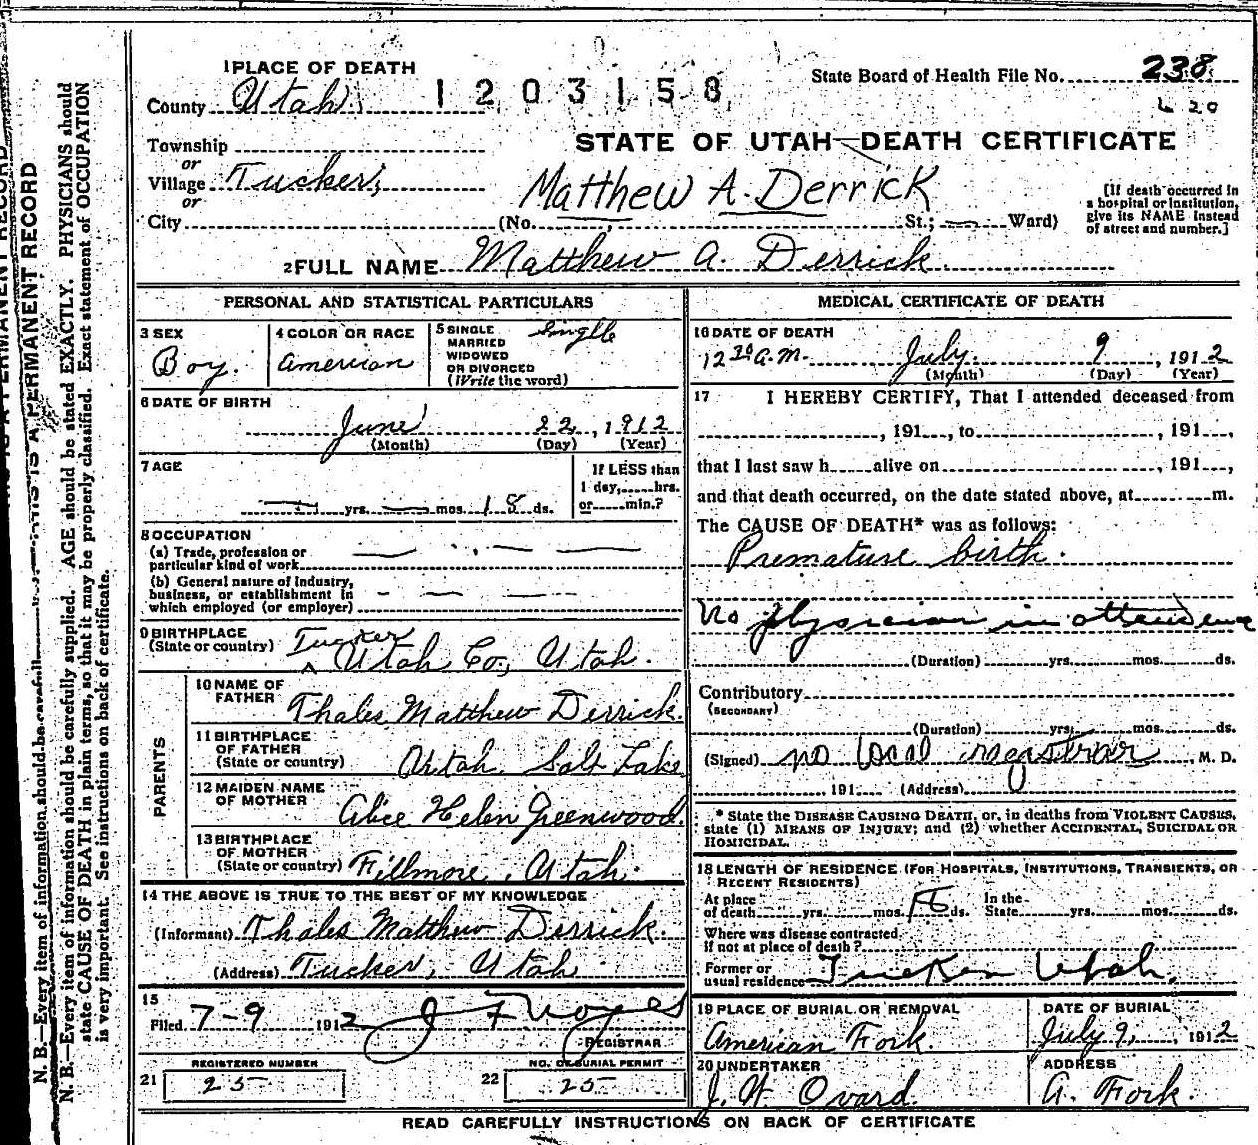 1 PLACE OF DEATH
County Utah
1203158
State Board of Health File No. 238
620
STATE OF UTAH—DEATH CERTIFICATE
Township
or
Village Tucker,
or
City
Matthew A. Derrick
(No. St.; Ward)
[If death occurred in
a hospital or institution,
give its NAME instead
of street and number.]
2 FULL NAME Matthew A. Derrick
PERSONAL AND STATISTICAL PARTICULARS
3 SEX
Boy.
4 COLOR OR RACE
American
5 SINGLE
MARRIED
WIDOWED
OR DIVORCED
(Write the word)
Single
6 DATE OF BIRTH
June 22, 1912
(Month) (Day) (Year)
7 AGE
— yrs. — mos. 18 ds.
If LESS than
1 day, hrs.
or min.?
8 OCCUPATION
(a) Trade, profession or
particular kind of work
(b) General nature of Industry,
business, or establishment in
which employed (or employer)
9 BIRTHPLACE
(State or country)
Tucker
Utah Co., Utah.
PARENTS
10 NAME OF
FATHER
Thales Matthew Derrick.
11 BIRTHPLACE
OF FATHER
(State or country)
Utah. Salt Lake
12 MAIDEN NAME
OF MOTHER
Alice Helen Greenwood.
13 BIRTHPLACE
OF MOTHER
(State or country)
Fillmore, Utah.
14 THE ABOVE IS TRUE TO THE BEST OF MY KNOWLEDGE
(Informant) Thales Matthew Derrick.
(Address) Tucker, Utah
15
Filed 7-9 1912 J F Noyes
REGISTRAR
REGISTERED NUMBER
21 25
NO. OF BURIAL PERMIT
22 25
MEDICAL CERTIFICATE OF DEATH
16 DATE OF DEATH
12 30 A.M. July 9, 1912
(Month) (Day) (Year)
17 I HEREBY CERTIFY, That I attended deceased from
, 191 , to , 191 ,
that I last saw h alive on , 191 ,
and that death occurred, on the date stated above, at m.
The CAUSE OF DEATH* was as follows:
Premature birth.
No physician in attendence
(Duration) yrs. mos. ds.
Contributory
(SECONDARY)
(Duration) yrs. mos. ds.
(Signed) no local registrar, M. D.
191 (Address)
* State the DISEASE CAUSING DEATH, or, in deaths from VIOLENT CAUSES,
state (1) MEANS OF INJURY; and (2) whether ACCIDENTAL, SUICIDAL OR
HOMICIDAL.
18 LENGTH OF RESIDENCE (FOR HOSPITALS, INSTITUTIONS, TRANSIENTS, OR
RECENT RESIDENTS)
At place
of death yrs. mos. 18 ds.
In the
State yrs. mos. ds.
Where was disease contracted
if not at place of death?
Former or
usual residence Tucker Utah.
19 PLACE OF BURIAL OR REMOVAL
American Fork.
DATE OF BURIAL
July 9, 1912
20 UNDERTAKER
J. H. Ovard.
ADDRESS
A. Fork.
READ CAREFULLY INSTRUCTIONS ON BACK OF CERTIFICATE
THIS IS A PERMANENT RECORD
N. B.—Every item of information should be carefully supplied. AGE should be stated EXACTLY. PHYSICIANS should
state CAUSE OF DEATH in plain terms, so that it may be properly classified. Exact statement of OCCUPATION
is very important. See instructions on back of certificate.
N. B.—Every item of information should be carefull